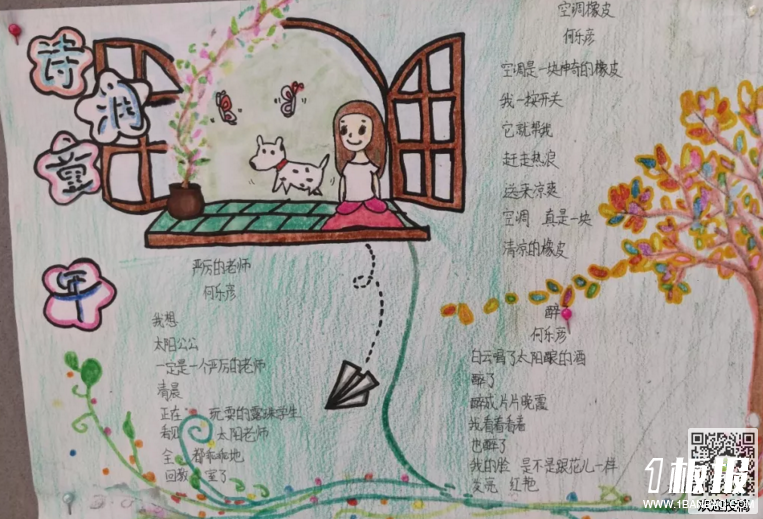 诗
润
童
年
空调橡皮
何乐彦
空调是一块神奇的橡皮
我一按开关
它就帮我
赶走热浪
送来凉爽
空调 真是一块
清凉的橡皮
严厉的老师
何乐彦
我想
太阳公公
一定是一个严厉的老师
清晨
正在 玩耍的露珠学生
看见 太阳老师
全 都乖乖地
回教 室了
醉
何乐彦
白云喝了太阳酿的酒
醉了
醉成片片晚霞
我看着看着
也醉了
我的脸 是不是跟花儿一样
发亮 红艳
1板报
WWW.1BANBAO.COM